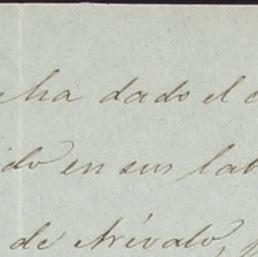 ha dado el
ido en sus lab
de Arévalo,